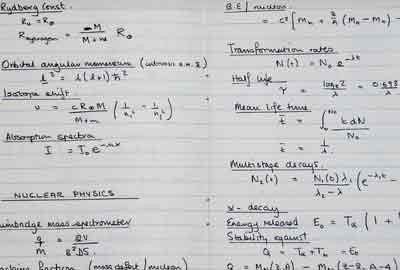 Rydberg Const.
R₀ = R∞
R_Hydrogen = M / (M + m) R∞
Orbital angular momentum (intrinsic
l² = l(l+1)ħ²
Isotope shift.
υ = cR∞M / (M+m) (1/n₁² - 1/n₂²)
Absorption spectra
I = I₀e^-
NUCLEAR PHYSICS
mass spectrometer
q/m =
fraction (mass defect / nucleon)
B.E / nucleon
= c² [Mn + Z/A (MH - Mn) -
Transformation rates.
N(t) = N₀e^-λt
Half life
τ = loge2 / λ = 0.693
Mean life time
t̄ = ∫ t dN / N₀
t̄ = 1/λ
Multistage decays.
N₂(t) = N₁(0)λ₁ / (λ₂ - λ₁) (e^-λ₁t -
α - decay
Energy released E₀ = Tα (1 +
Stability against
Q = Tα + Th = E₀
Q = (Z, A) - (Z-2, A-4)